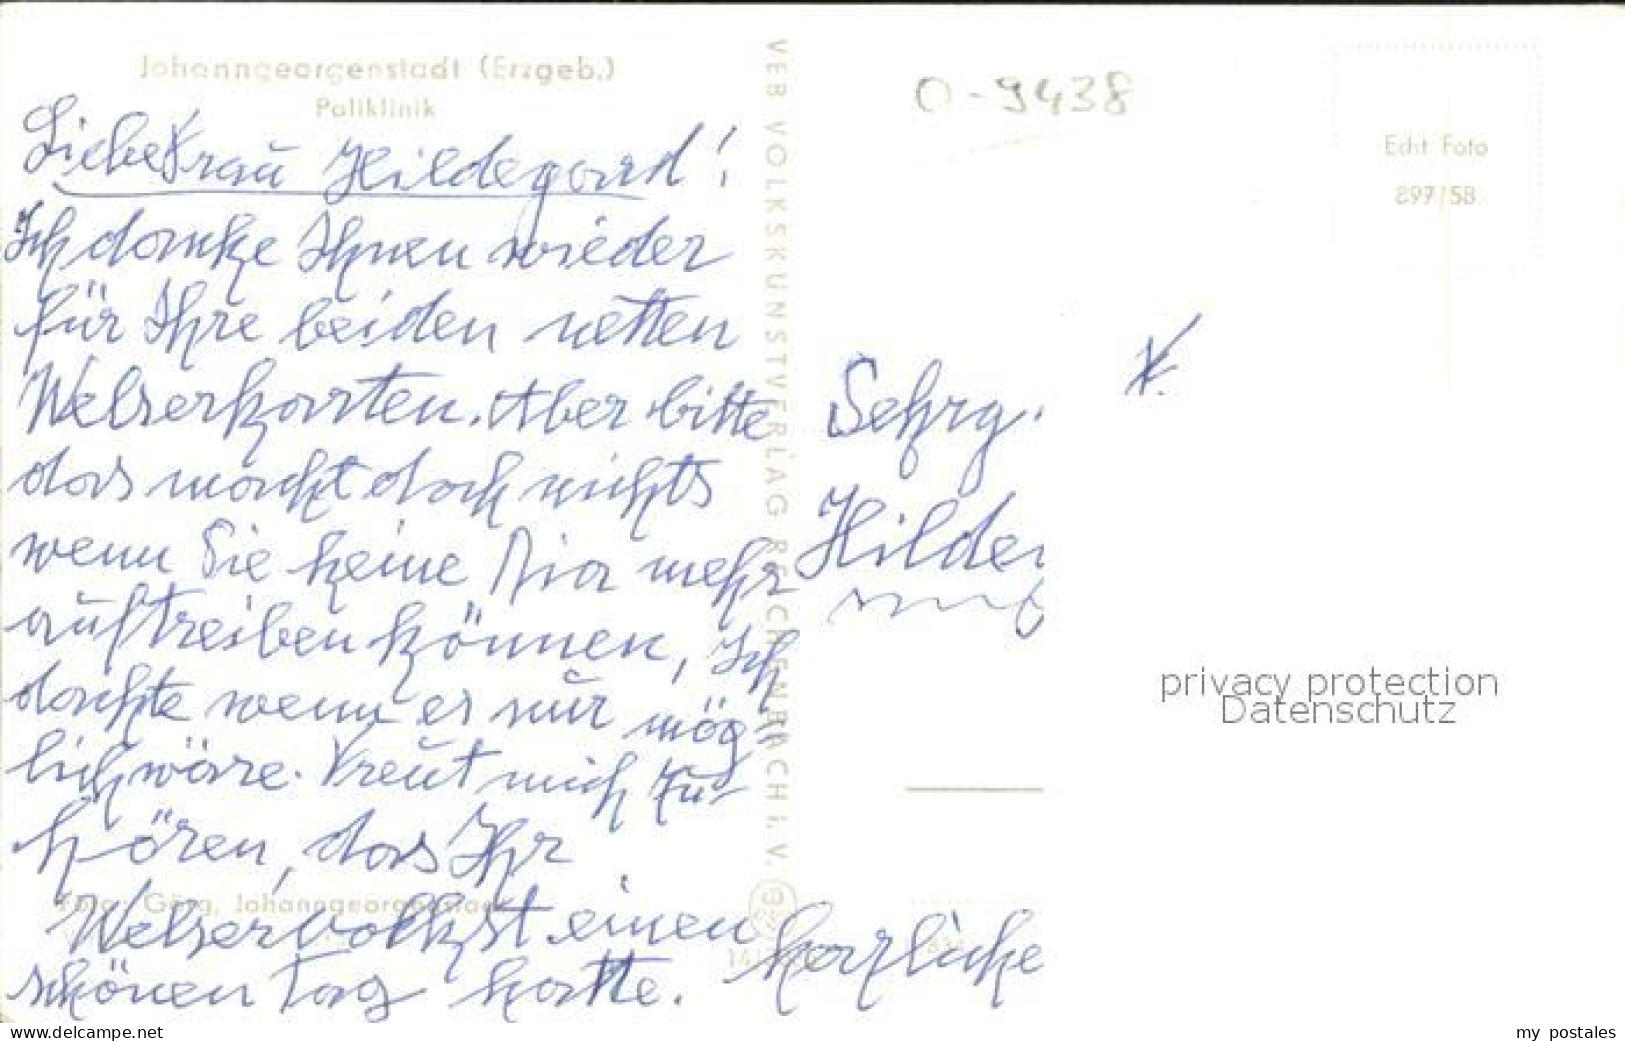 Johanngeorgenstadt (Erzgeb.)
Poliklinik
Liebe Frau Hildegard!
Ich danke Ihnen wieder
für Ihre beiden netten
Welserkarten. Aber bitte
das macht doch nichts
wenn Sie keine Dia mehr
auftreiben können, Ich
dachte wenn es nur mög-
lich wäre. Freut mich zu
hören, das Ihr
Welservolkst einen
schönen Tag hatte. herzliche
Görg, Johanngeorgenstadt
VEB VOLKSKUNSTVERLAG REICHENBACH I. V.
O-9438
Echt Foto
897/58
Sehrg.
Hilde
privacy protection
Datenschutz
www.delcampe.net
my_postales